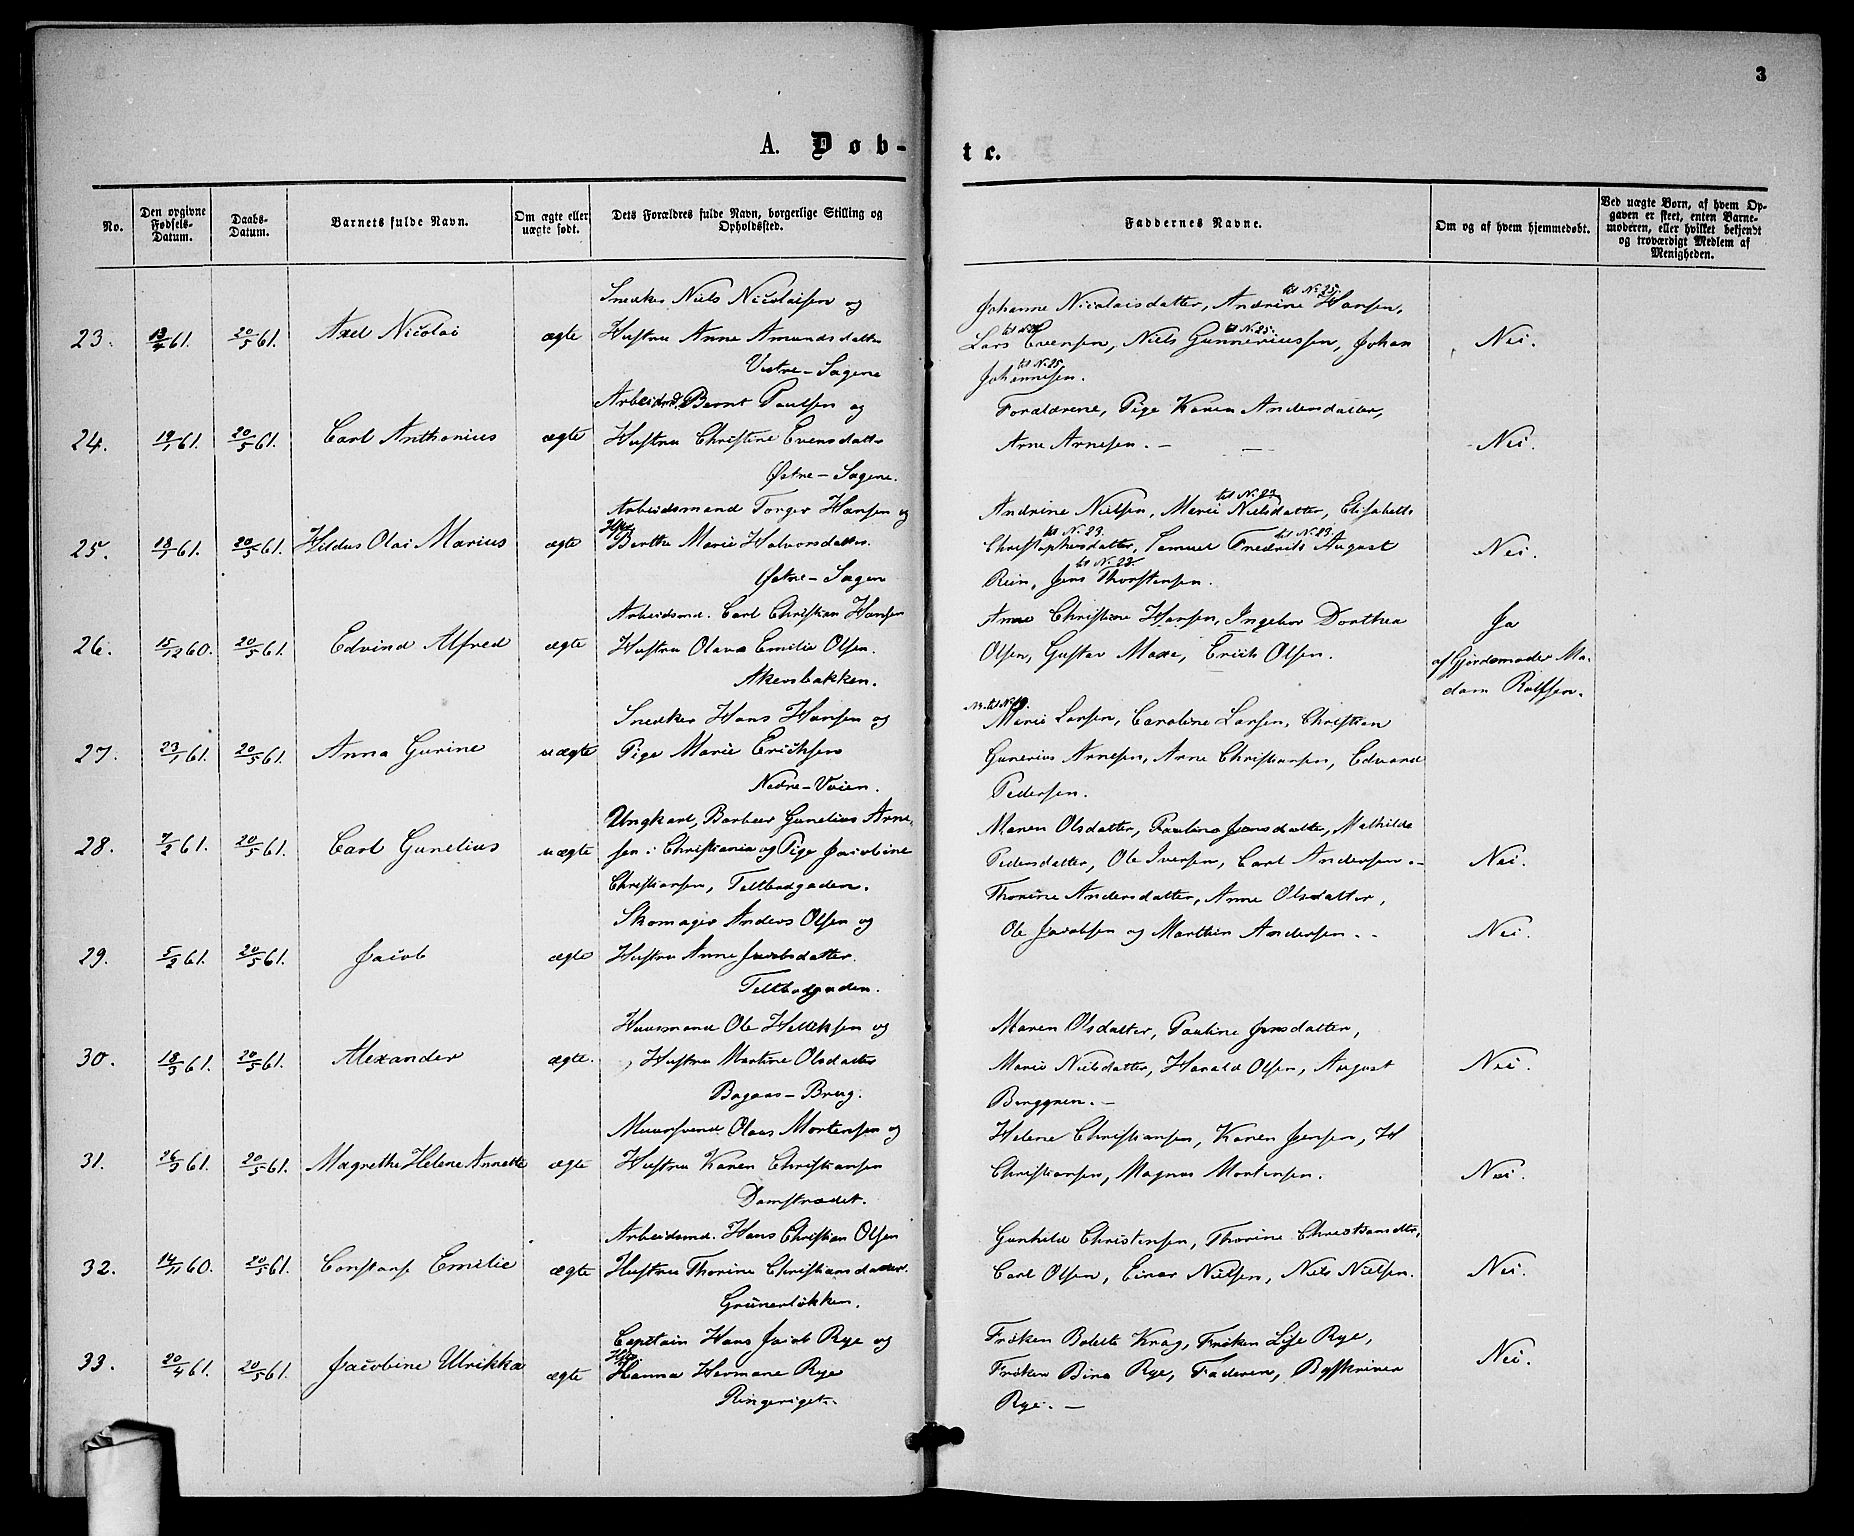 3
A. Døb-
te.
No.
Den opgivne Fødsels-Datum.
Daabs-Datum.
Barnets fulde Navn.
Om ægte eller uægte født.
Dets Forældres fulde Navn, borgerlige Stilling og Opholdssted.
Faddernes Navne.
Om og af hvem hjemmedøbt.
Ved uægte Børn, af hvem Opgaven er skeet, enten Barnemoderen, eller hvilket bekjendt og troværdigt Medlem af Menigheden.
Snedker Niels Nicolaisen og
til No. 25.
Johanne Nicolaisdatter, Andrine Hansen,
23. 61. 20/5 61. Axel Nicolai ægte Hustru Anne Amundsdatter
til No. 25.
Lars Evensen, Niels Gunneriussen, Johan Nei.
Vestre-Sagene
til No. 25.
Johannesen.
Arbeidsmd. Bernt Paulsen og
Forældrene, Pige Karen Andersdatter,
24. 19/1 61. 20/5 61. Carl Anthonius ægte Hustru Christine Evensdatter
Arne Arnesen. — — Nei.
Østre-Sagene.
Arbeidsmand Torger Hansen og
til No. 23.
Andrine Nielsen, Marie Nielsdatter, Elisabeth
25. 61. 20/5 61. Hildus Olai Marius ægte Berthe Marie Halvorsdatter.
til No. 23. til No. 23.
Christophersdatter, Samuel Fredrik August Nei.
Østre-Sagene
til No. 23.
Rein, Jens Thorstensen.
Arbeidsmd. Carl Christian Hansen
Anne Christine Hansen, Ingebor Dorthea Ja
26. 15/12 60. 20/5 61. Edvind Alfred ægte Hustru Olava Emilie Olsen.
Olsen, Gustav Moxe, Erick Olsen. af Gjordemoder Ma-
Akersbakken.
dam Rolfsen.
Snedker Hans Hansen og
Marie Larsen, Caroline Larsen, Christian
27. 23/1 61. 20/5 61. Anna Gurine uægte Pige Marie Ericksen
Gunerius Arnesen, Arne Christiansen, Edvard
Nedre-Voien.
Pedersen.
Ungkarl, Barbeer Gunelius Arne-
Maren Olsdatter, Pauline Jensdatter, Mathilde
28. 7/2 61. 20/5 61. Carl Gunelius uægte sen i Christiania og Pige Jacobine
Pedersdatter, Ole Iversen, Carl Andersen.- Nei.
Christiansen, Teltbodgaden.
Thorine Andersdatter, Anne Olsdatter,
Skomager Anders Olsen og
Ole Jacobsen og Marthin Andersen.- Nei.
29. 5/2 61. 20/5 61. Jacob ægte Hustru Anne Jacobsdatter.
Teltbodgaden.
Huusmand Ole Helliksen og
Maren Olsdatter, Pauline Jensdatter,
30. 18/3 61. 20/5 61. Alexander ægte. Hustru Martine Olsdatter
Marie Nielsdatter, Harald Olsen, August Nei.
Bagaas-Brug.
Berggren.-
Muursvend Olaus Mortensen og
Helene Christiansen, Karen Jensen, H
31. 26/3 61. 20/5 61. Magrethe Helene Annette ægte Hustru Karen Christiansen
Christiansen, Magnus Mortensen. Nei.
Damstrædet.
Arbeidsmd. Hans Christian Olsen
Gunhild Christensen, Thorine Christiansdtr,
32. 14/11 60. 20/5 61. Constanse Emilie ægte Hustru Thorine Christiansdatter.
Carl Olsen, Einar Nielsen, Niels Nielsen. Nei.
Grünerløkken.
Captain Hans Jacob Rye og
Frøken Bolette Krag, Frøken Lise Rye,
33. 20/4 61. 20/5 61. Jacobine Ulrikka ægte Hanna Hermane Rye
Frøken Bina Rye, Faderen, Byskriver Nei.
Ringeriget.
Rye.-